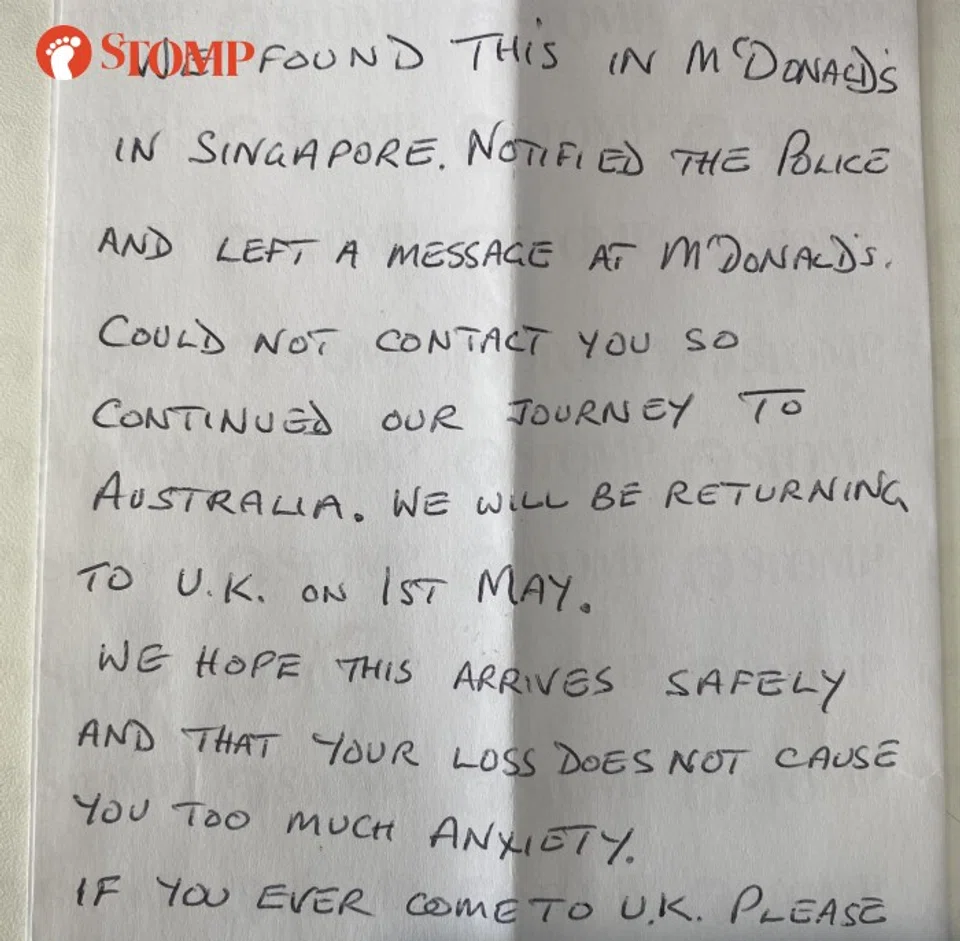 STOMP
WE FOUND THIS IN McDONALD'S
IN SINGAPORE. NOTIFIED THE POLICE
AND LEFT A MESSAGE AT McDONALD'S.
COULD NOT CONTACT YOU SO
CONTINUED OUR JOURNEY TO
AUSTRALIA. WE WILL BE RETURNING
TO U.K. ON 1ST MAY.
WE HOPE THIS ARRIVES SAFELY
AND THAT YOUR LOSS DOES NOT CAUSE
YOU TOO MUCH ANXIETY.
IF YOU EVER COME TO U.K. PLEASE